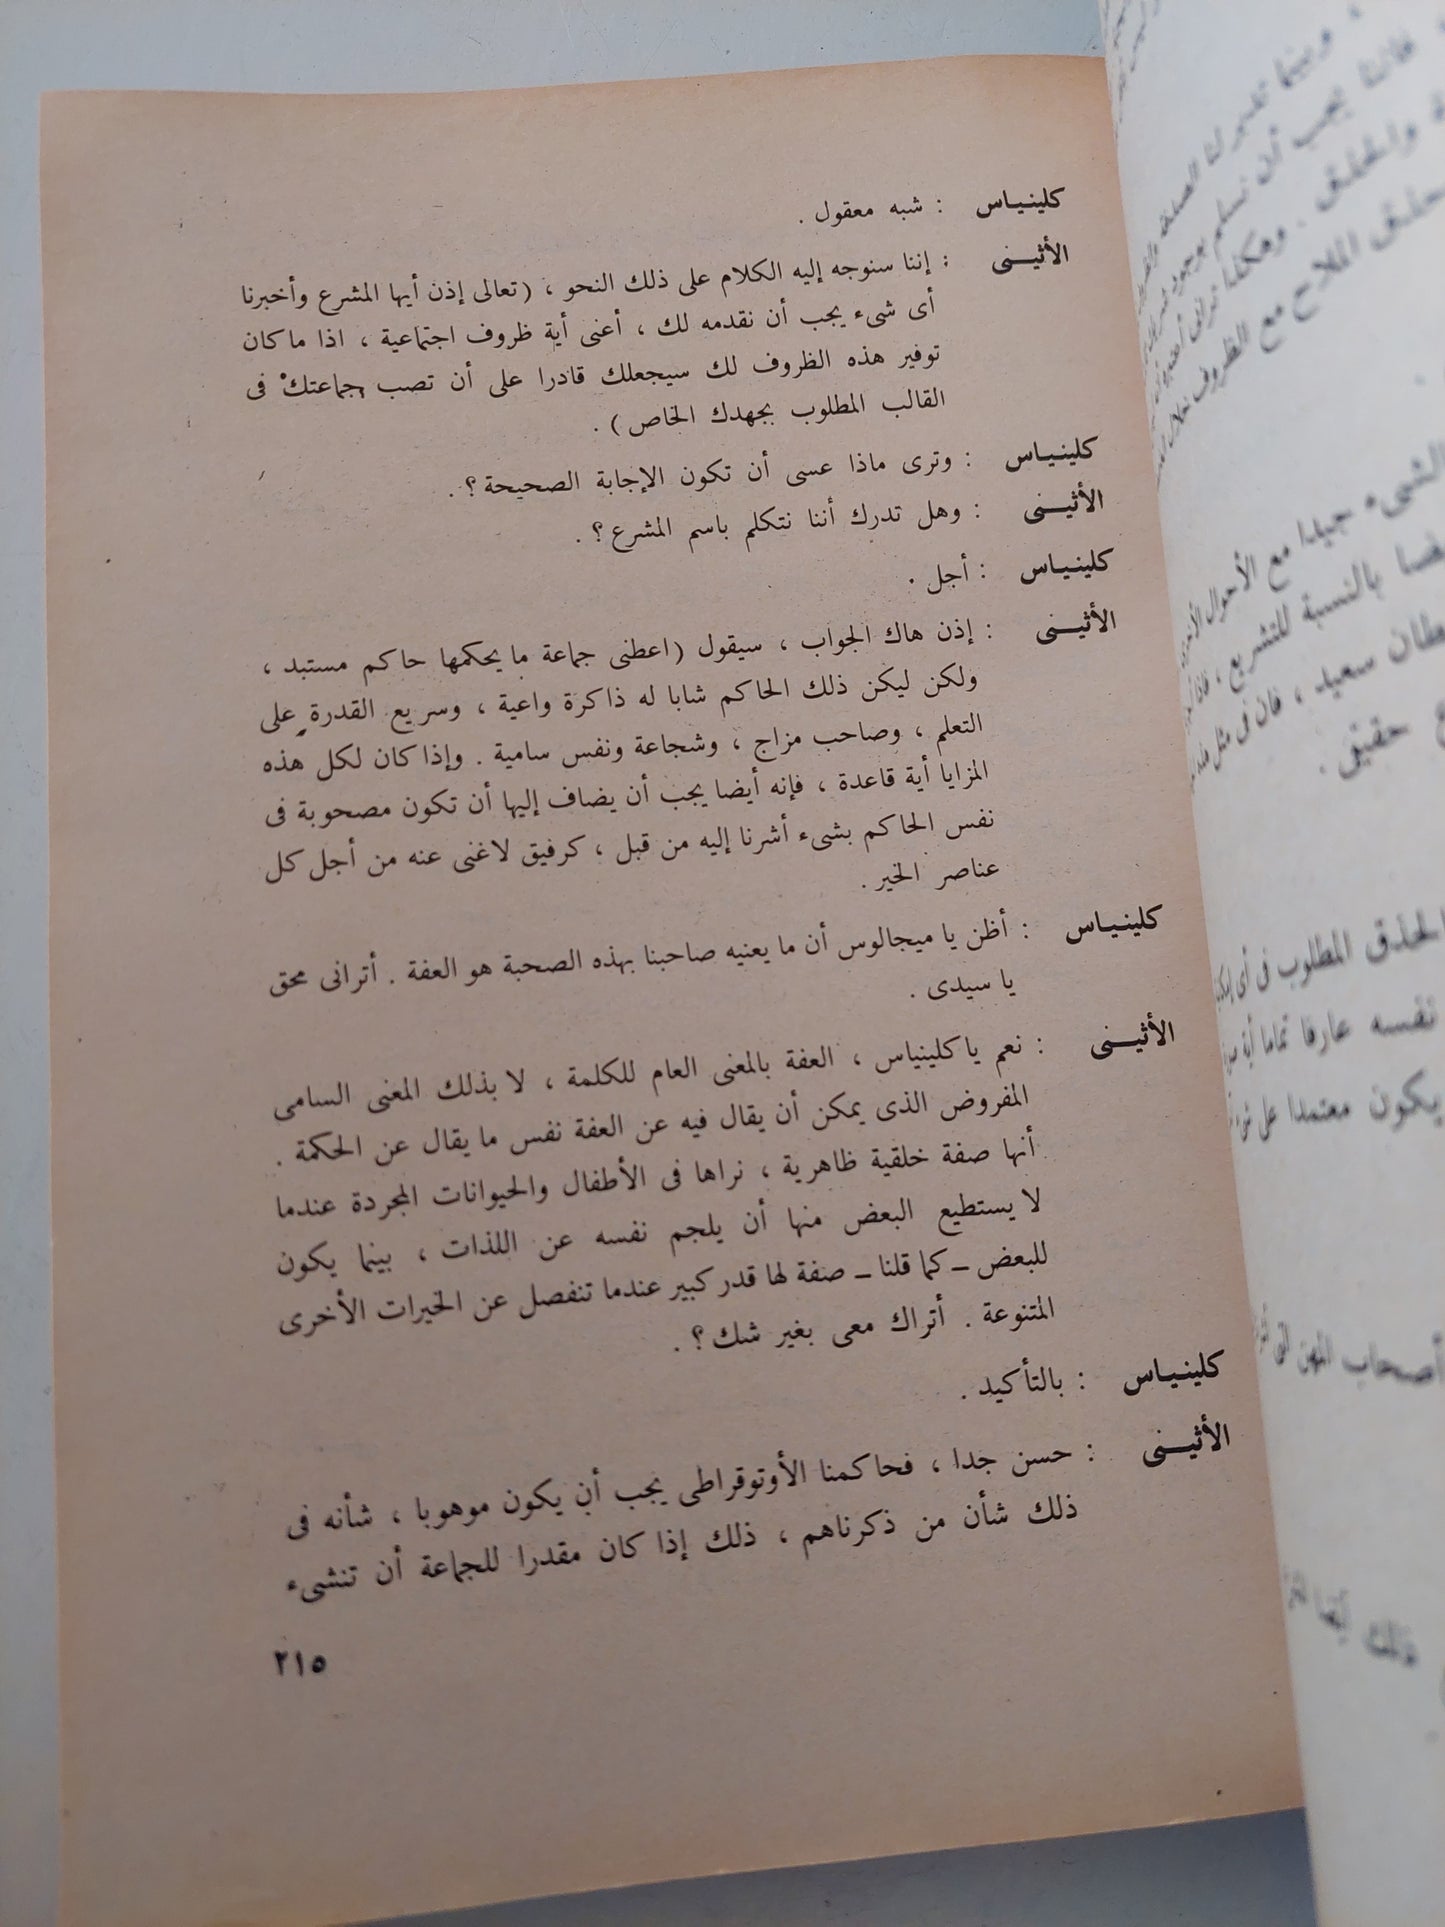 كلينياس : شبه معقول .
الأثينى : إننا سنوجه إليه الكلام على ذلك النحو ، (تعالى إذن أيها المشرع وأخبرنا
أى شىء يجب أن نقدمه لك ، أعنى أية ظروف اجتماعية ، اذا ما كان
توفير هذه الظروف لك سيجعلك قادرا على أن تصب جماعتك فى
القالب المطلوب بجهدك الخاص) .
كلينياس : وترى ماذا عسى أن تكون الإجابة الصحيحة ؟ .
الأثينى : وهل تدرك أننا نتكلم باسم المشرع ؟ .
كلينياس : أجل .
الأثينى : إذن هاك الجواب ، سيقول (اعطنى جماعة ما يحكمها حاكم مستبد ،
ولكن ليكن ذلك الحاكم شابا له ذاكرة واعية ، وسريع القدرة على
التعلم ، وصاحب مزاج ، وشجاعة ونفس سامية . وإذا كان لكل هذه
المزايا أية قاعدة ، فإنه أيضا يجب أن يضاف إليها أن تكون مصحوبة فى
نفس الحاكم بشىء أشرنا إليه من قبل ، كرفيق لاغنى عنه من أجل كل
عناصر الخير .
كلينياس : أظن يا ميجالوس أن ما يعنيه صاحبنا بهذه الصحبة هو العفة . أترانى محق
يا سيدى .
الأثينى : نعم يا كلينياس ، العفة بالمعنى العام للكلمة ، لا بذلك المعنى السامى
المفروض الذى يمكن أن يقال فيه عن العفة نفس ما يقال عن الحكمة .
أنها صفة خلقية ظاهرية ، نراها فى الأطفال والحيوانات المجردة عندما
لا يستطيع البعض منها أن يلجم نفسه عن اللذات ، بينما يكون
للبعض – كما قلنا – صفة لها قدر كبير عندما تنفصل عن الخيرات الأخرى
المتنوعة . أتراك معى بغير شك ؟ .
كلينياس : بالتأكيد .
الأثينى : حسن جدا ، فحاكمنا الأوتوقراطى يجب أن يكون موهوبا ، شأنه فى
ذلك شأن من ذكرناهم ، ذلك إذا كان مقدرا للجماعة أن تنشىء
٢١٥
فاننا يجب أن نسلم بوجود
والحذق . وهكذا
الملاح مع الظروف خلال
الشىء جيدا مع الأحوال الأخرى
بالنسبة للتشريع ،
سعيد ، فان فى مثل
حقيقى .
الحذق المطلوب فى أى
نفسه عارفا تماما أية
يكون معتمدا على
أصحاب المهن التى
ذلك